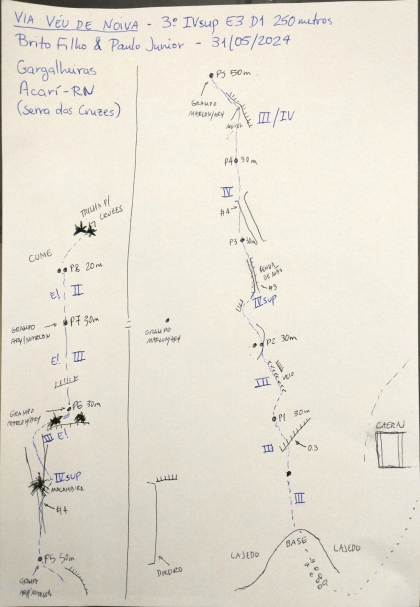 VIA VÉU DE NOIVA - 3º IVsup E3 D1 250 metros
Brito Filho & Paulo Junior - 31/05/2024
Gargalheiras
Acari-RN
(Serra das Cruzes)
P5 50m
GRAMPO
MARLON/ARY
MÓVEL
III/IV
P4 30m
IV
#4
P3 30m
FENDA
DE MÃO
#3
IVsup
P2 30m
III
VEIO
P1 30m
II
0.3
III
BASE
LAJEDO
LAJEDO
CAERN
TRILHA P/
CRUZES
CUME
P8 20m
E! II
P7 30m
GRAMPO
ARY/MARLON
E! III
GRAMPO
MARLON/ARY
P6 30m
III E!
IVsup
MACAMBIRA
#4
P5 50m
GRAMPO
ARY/MARLON
GRAMPO
MARLON/ARY
DIEDRO